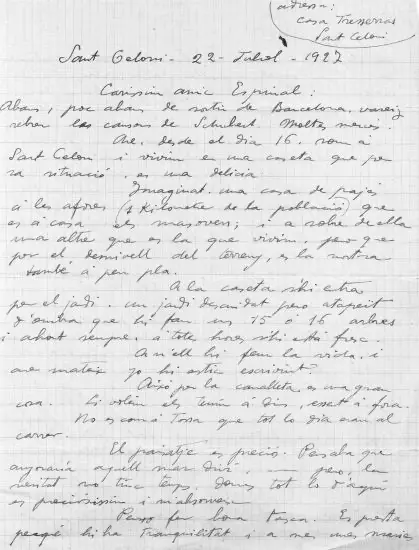 adressa:
casa Tresserras
Sant Celoni
Sant Celoni - 22 - Juliol - 1927
Caríssim amic Espinal:
Abans, poc abans de sortir de Barcelona, vareig
rebre las cansons de Schubert. Moltes mercés.
Are, desde el dia 16, som a
Sant Celoni i vivim en una caseta que per
sa situació, es una delicia
Imaginat una casa de pajes
á les afores (1 Kilometre de la població) que
es á casa els masovers; i a sobre de ella
una altre que es la que vivim, pero que
per el desnivell del terreny, es la nostra
també á peu pla.
A la caseta s'hi entra
per el jardi. un jardi descuidat pero atapeit
d'ombra que hi fan uns 15 ó 16 arbres
i ahont sempre, a totes hores s'hi está fresc.
Aquell hi fem la vida, i
are mateix jo hi estic escribint.
Aixó per la canalleta es una gran
cosa. Si volem els tenim á dins, i á fora.
No es com á Tossa que tot lo dia eran al
carrer.
El paisatje es preciós. Pensaba que
anyoraria aquell mar diví, — pero, la
veritat no tinc temps. Doncs tot lo d'aquí
es preciosissim i m'absorveix.
Penso fer bona tasca. Es presta
perqué hi ha tranquilitat i a mes unes